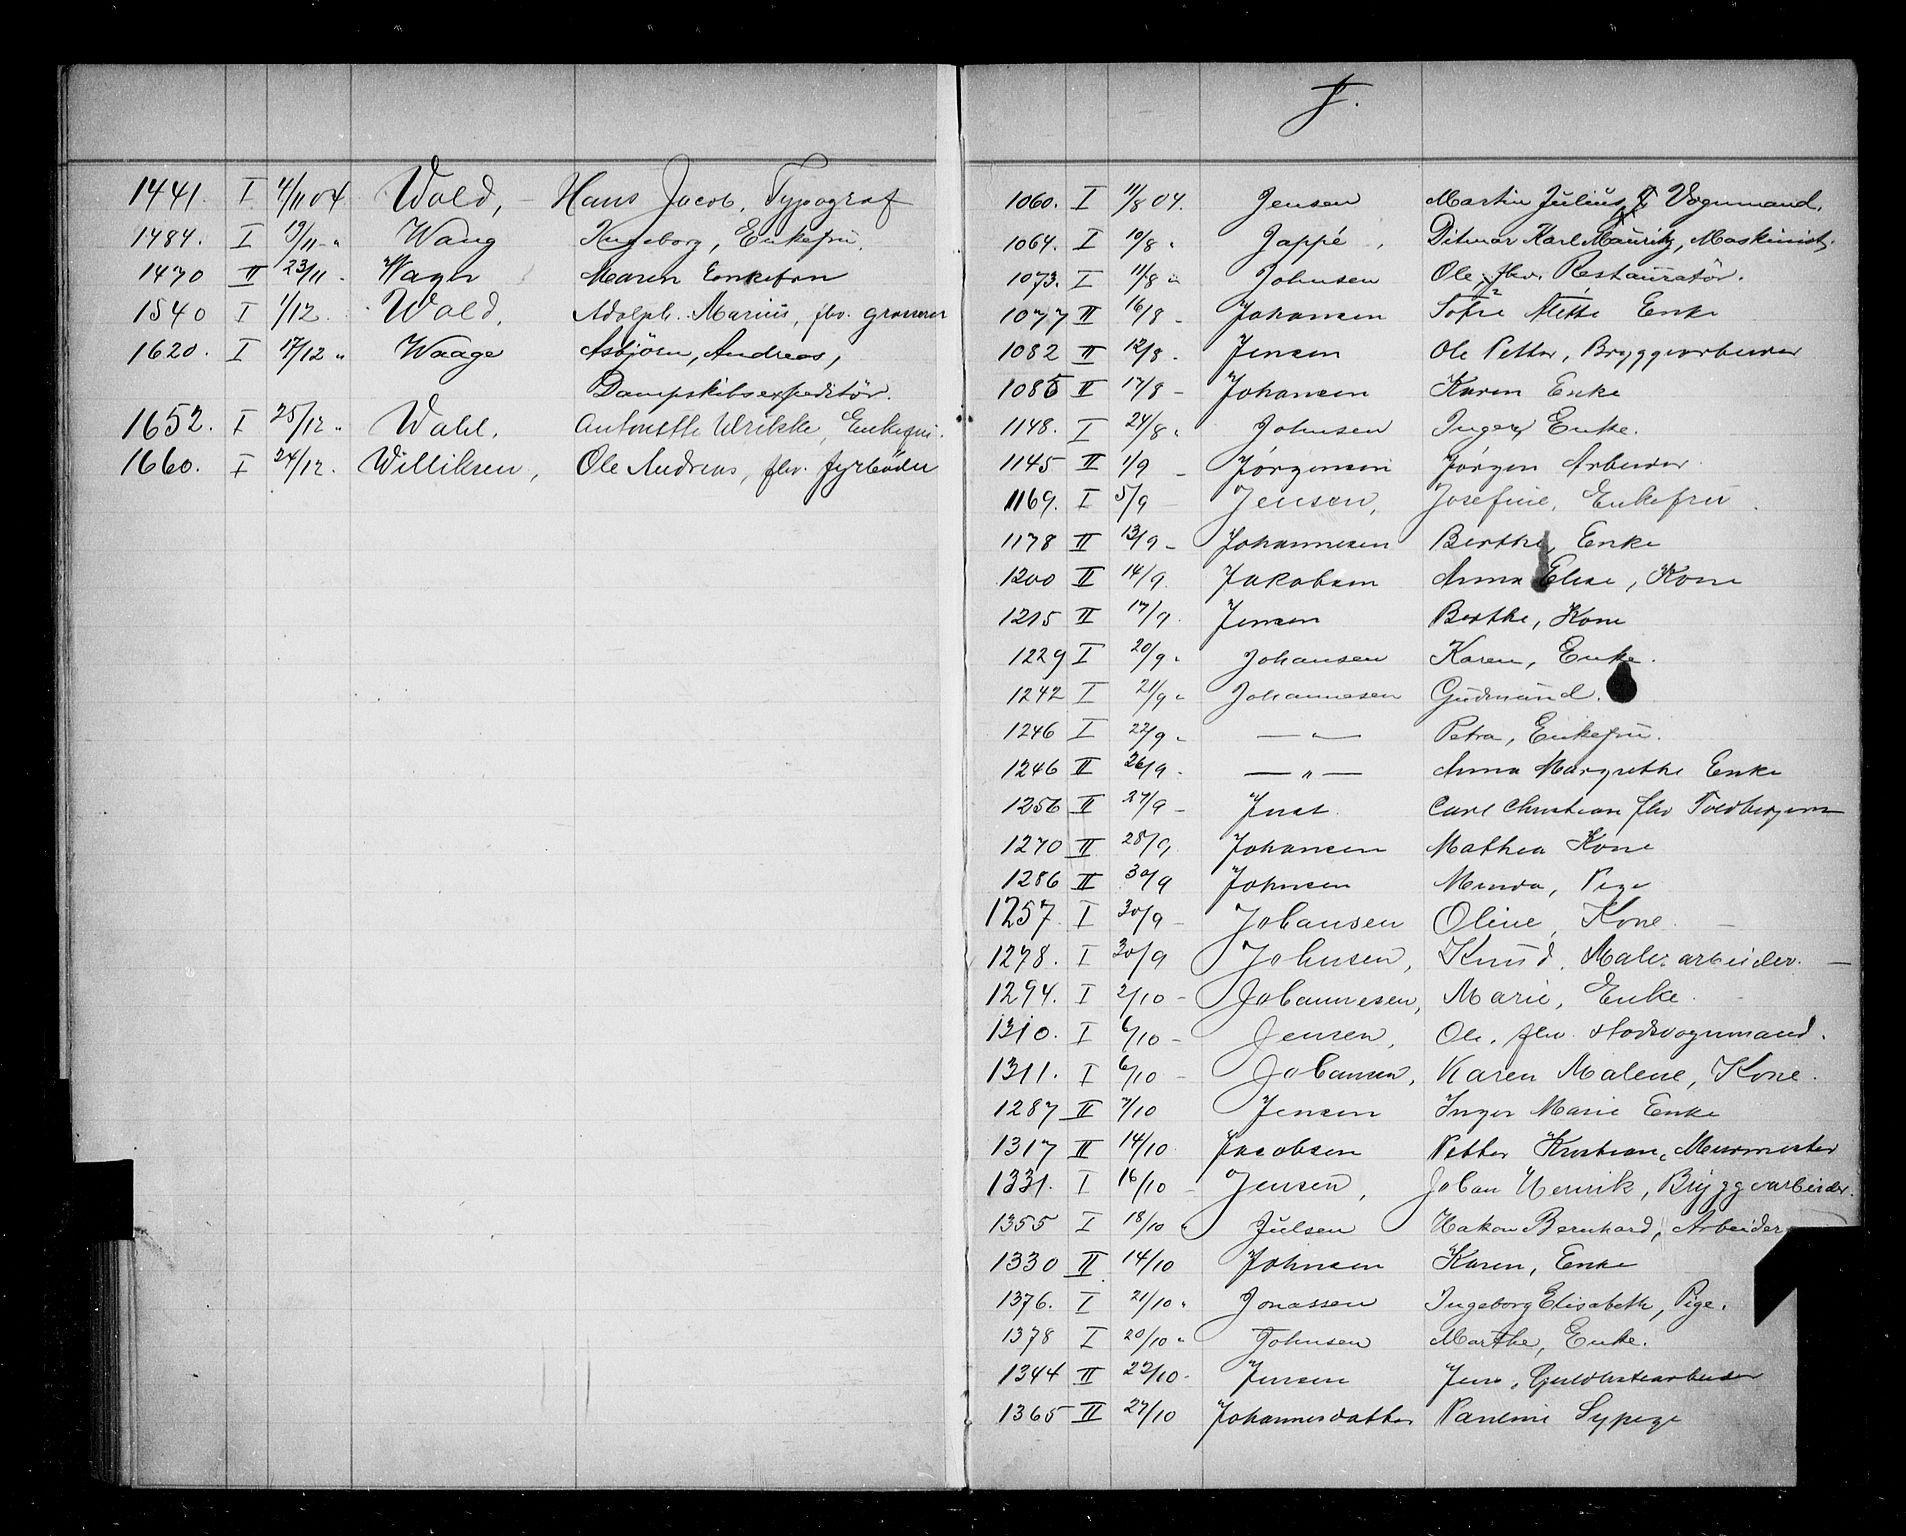 1441. I 4/11 04 Wold, – Hans Jacob, Typograf
1484. I 19/11 – " Wang Ingeborg, Enkefru.
1470 II 23/11 . Wager Maren Enkefru
1540 I 1/12. Wold, Adolph. Marius, fhv. grosserer
1620. I 17/12 " Waage Asbjörn, Andreas,
Dampskibsexpeditör.
1652. I 25/12 " Wahl. Antonette Ulrikke, Enkefru.
1660. I 24/12. Williksen, Ole Andreas, fhv. fyrböder
J.
1060. I 11/8 04. Jensen Martin Julius, Vognmand.
1064. I 10/8 " Jappé, Ditmar Karl Mauritz, Maskinist.
1073. I 11/8 " Johnsen Ole, fhv. Restauratör.
1077 II 16/8 – Johansen Sofie Mette Enke
1082 II 12/8 . Jensen Ole Petter, Bryggearbeider
1085 II 17/8 – Johansen Karen Enke
1148. I 24/8 " Johnsen Inger, Enke.
1145 II 1/9 – Jörgensen Jörgen Arbeider.
1169. I 5/9 – Jensen, Josefine, Enkefru.
1178 II 13/9 – Johannesen Berthe, Enke
1200 II 14/9. Jakobsen Anna Elise, Kone
1215 II 17/9. Jensen Berthe, Kone
1229 I 20/9 " Johansen Karen, Enke.
1242 I 21/9 " Johannesen Gudmund.
1246 I 22/9 " — " — Petra, Enkefru.
1246 II 26/9. — " — Anna Margrethe Enke
1256 II 27/9 – Just. Carl Christian fhv
1270 II 28/9. Johansen Mathea Kone
1286 II 30/9 Johnsen Minda, Pige
1257. I 30/9 – Johansen Oline, Kone. –
1278. I 30/9 Johnsen, Knud, Malerarbeider. –
1294. I 2/10 – Johannesen, Marie, Enke. –
1310. I 6/10 – Jensen, Ole, fhv. Stadsvognmand.
1311. I 6/10 – Johansen, Karen Malene, Kone.
1287 II 7/10 Jensen Inger Marie Enke
1317 II 14/10 Jacobsen Petter Kristian, Murmester
1331. I 16/10 – Jensen, Johan Henrik, Bryggearbeider.
1355 I 18/10 " Julsen Hakon Bernhard, Arbeider
1330 II 14/10 Johnsen Karen, Enke
1376. I 21/10 " Jonassen Ingeborg Elisabeth, Pige.
1378 I 20/10 " Johnsen Marthe, Enke.
1344 II 22/10. Jensen Jens, Guldlistearbeider
1365 II 27/10 Johannesdatter Pauline Sypige